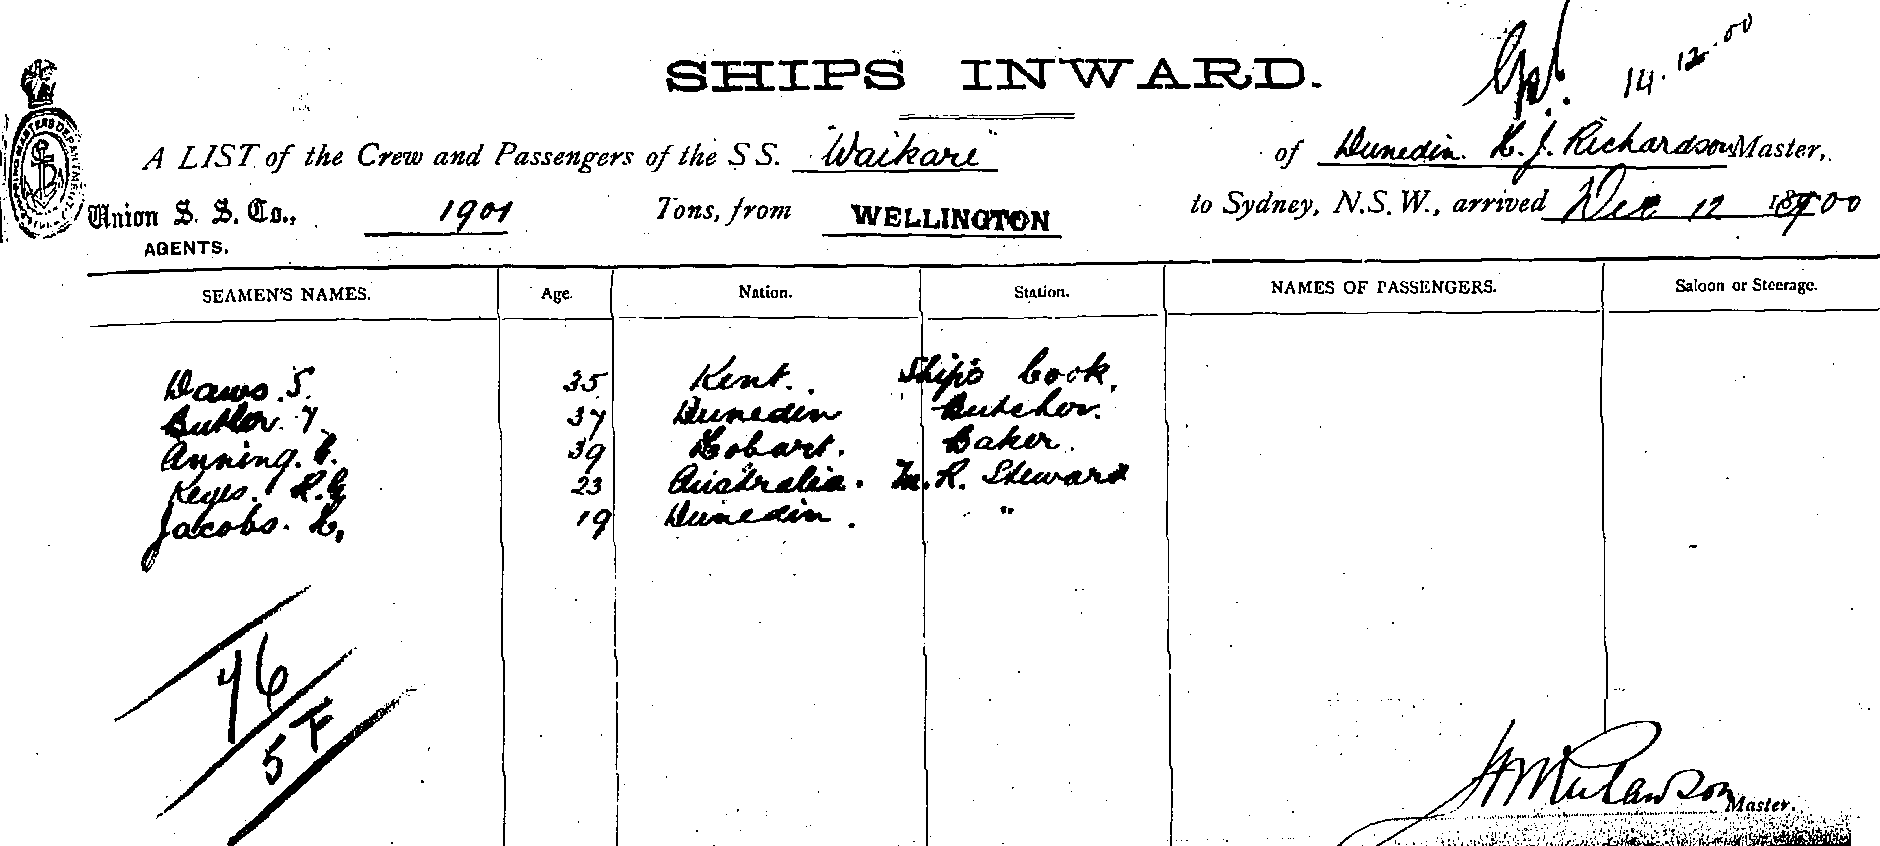 14.12.00
SHIPS INWARD.
A LIST of the Crew and Passengers of the S S. "Waikare" of Dunedin. H. J. Richardson Master,
Union S. S. Co., 1901 Tons, from WELLINGTON to Sydney, N.S.W., arrived Dec 12 1900
AGENTS.
SEAMEN'S NAMES. Age. Nation. Station. NAMES OF PASSENGERS. Saloon or Steerage.
Daws. S. 35 Kent. Ship's Cook.
Butler. 37 Dunedin Butcher.
Anning. C. 39 Hobart. Baker.
Keys. H.G 23 Australia. M.R. Steward
Jacobs. H. 19 Dunedin. "
46
5 F
Master.